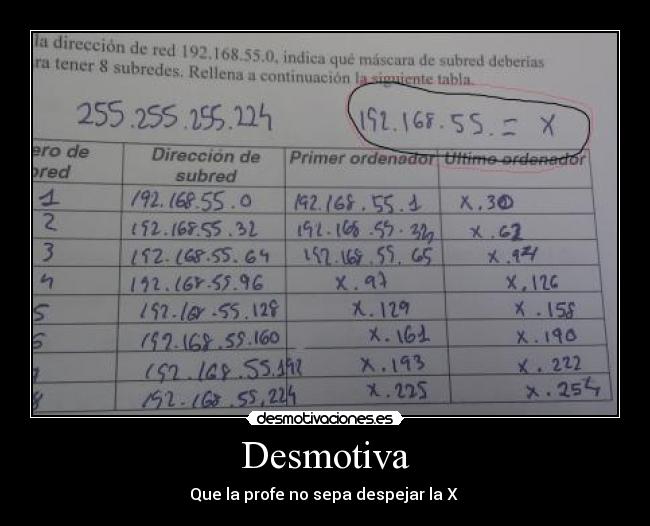 la dirección de red 192.168.55.0, indica qué máscara de subred deberías
ra tener 8 subredes. Rellena a continuación la siguiente tabla.
255.255.255.224
192.168.55. = X
ero de
bred
Dirección de
subred
Primer ordenador
Último ordenador
1 192.168.55.0 192.168.55.1 X.30
2 192.168.55.32 192.168.55.33 X.62
3 192.168.55.64 192.168.55.65 X.94
4 192.168.55.96 X.97 X.126
5 192.168.55.128 X.129 X.158
6 192.168.55.160 X.161 X.190
192.168.55.192 X.193 X.222
8 192.168.55.224 X.225 X.254
desmotivaciones.es
Desmotiva
Que la profe no sepa despejar la X